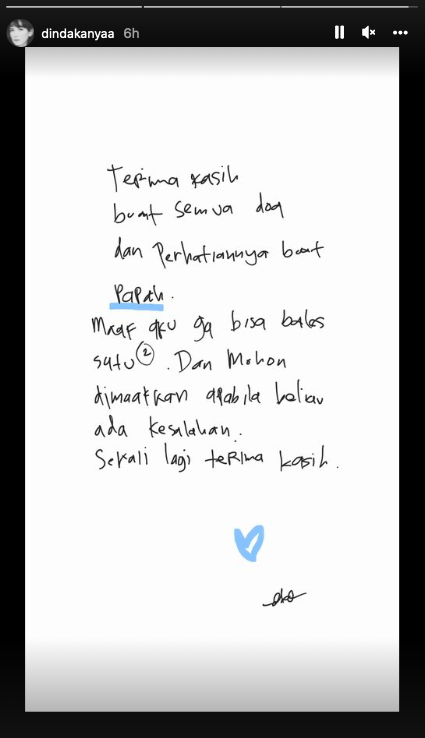 dindakanyaa 6h
Terima kasih
buat semua doa
dan Perhatiannya buat
Papah.
Maaf aku ga bisa bales
satu②. Dan Mohon
dimaafkan apabila beliau
ada kesalahan.
Sekali lagi terima kasih.